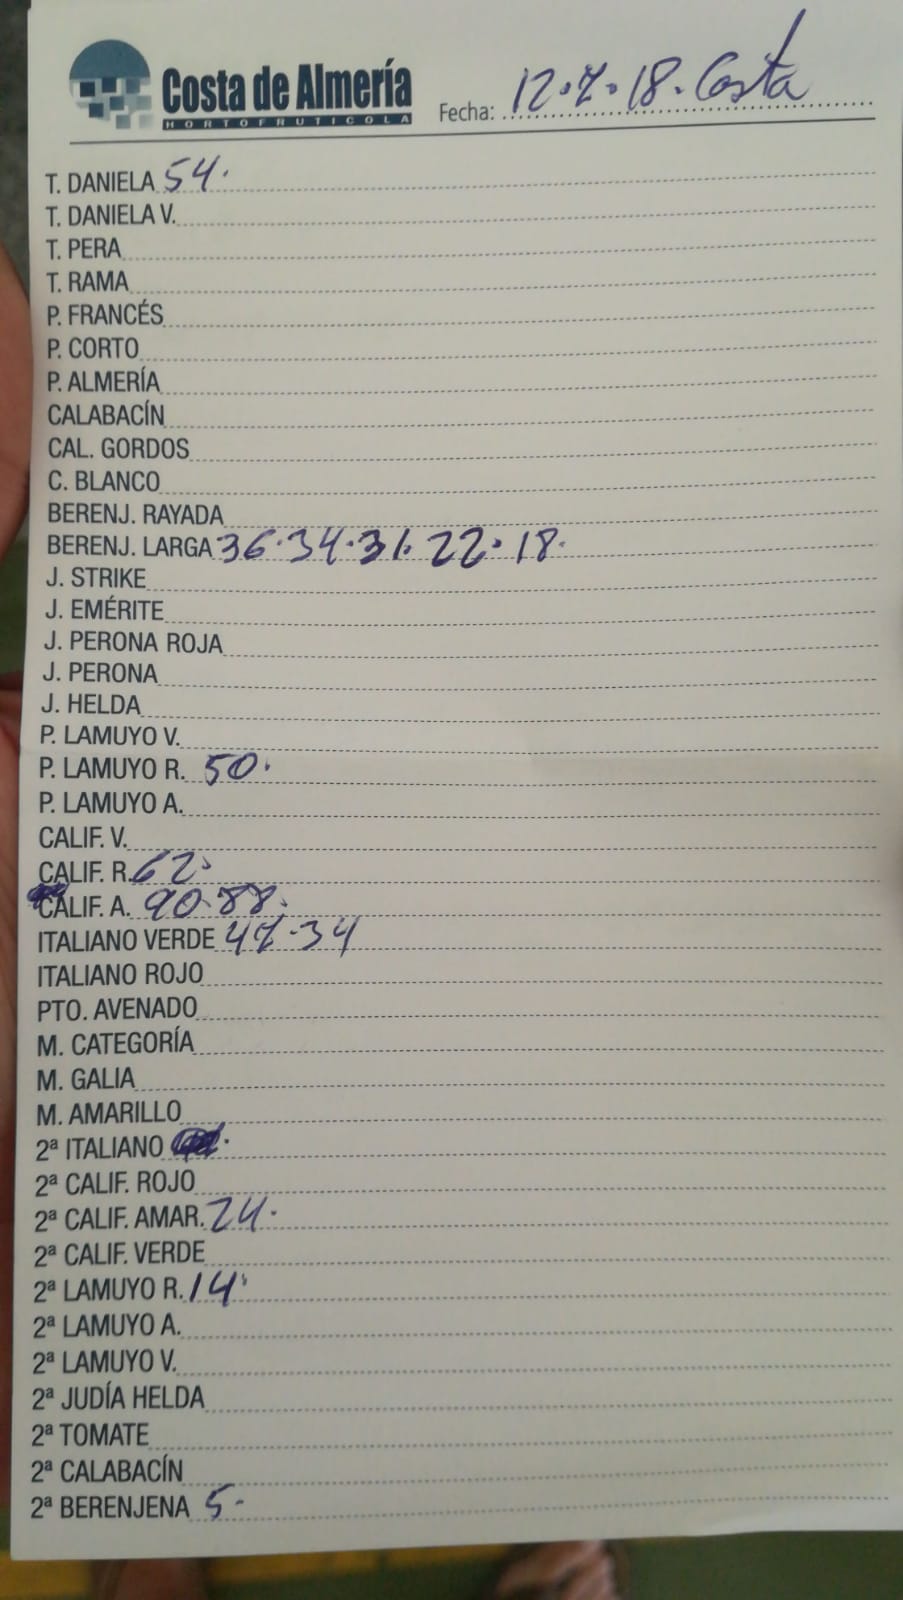 Costa de Almería
HORTOFRUTICOLA
Fecha: 12.7.18. Costa
T. DANIELA 54.
T. DANIELA V.
T. PERA
T. RAMA
P. FRANCÉS
P. CORTO
P. ALMERÍA
CALABACÍN
CAL. GORDOS
C. BLANCO
BERENJ. RAYADA
BERENJ. LARGA 36.34.31.22.18.
J. STRIKE
J. EMÉRITE
J. PERONA ROJA
J. PERONA
J. HELDA
P. LAMUYO V.
P. LAMUYO R. 50.
P. LAMUYO A.
CALIF. V.
CALIF. R. 62.
CALIF. A. 90.88.
ITALIANO VERDE 47.34
ITALIANO ROJO
PTO. AVENADO
M. CATEGORÍA
M. GALIA
M. AMARILLO
2ª ITALIANO
2ª CALIF. ROJO
2ª CALIF. AMAR. 24.
2ª CALIF. VERDE
2ª LAMUYO R. 14.
2ª LAMUYO A.
2ª LAMUYO V.
2ª JUDÍA HELDA
2ª TOMATE
2ª CALABACÍN
2ª BERENJENA 5.